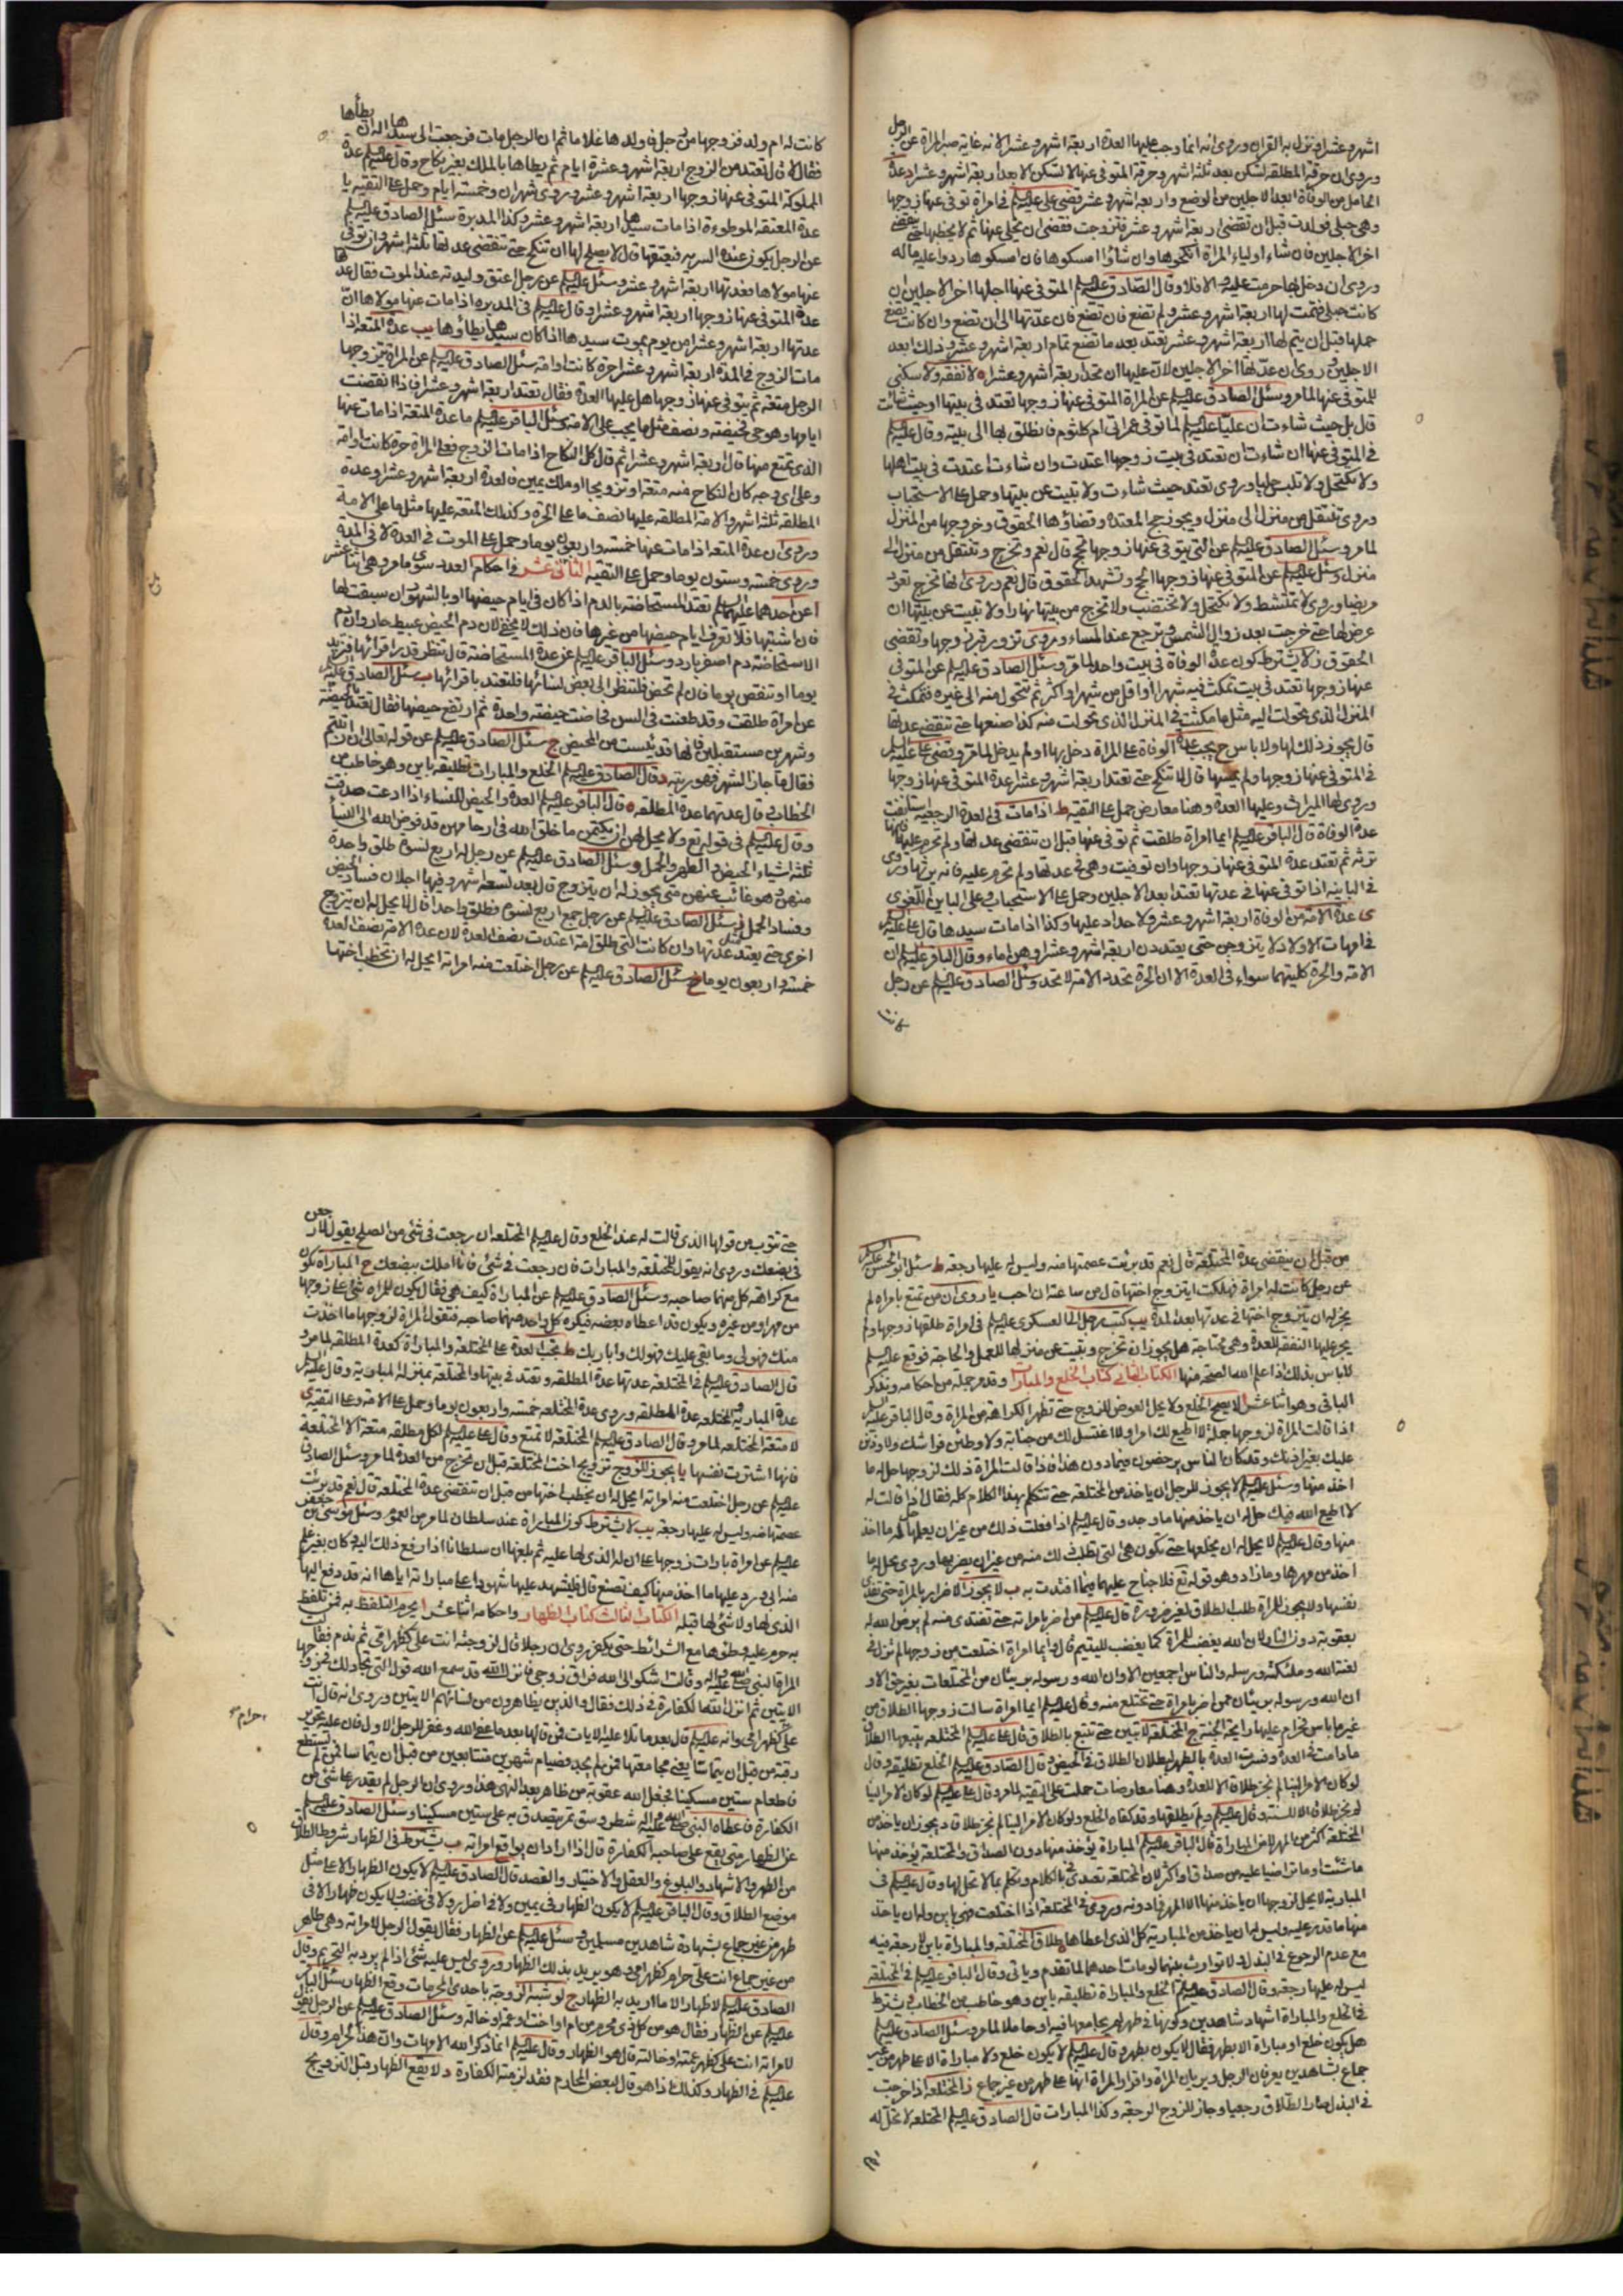 اشهر وعشرا فنزل به القران وروى انه انما وجب عليها العدة اربعة اشهر وعشرا لانه غاية صبر المراة عن الرجل
وروى ان حرقة المطلقة تسكن بعد ثلثة اشهر وحرقة المتوفى عنها لا تسكن الا بعد اربعة اشهر وعشرا د عدة
الحامل من الوفاة ابعد الاجلين من الوضع واربعة اشهر وعشر قضى على عليه السلم فى امراة توفى عنها زوجها
وهى حبلى فولدت قبل ان تنقضى اربعة اشهر وعشر فتزوجت فقضى ان يخلى عنها ثم لا يخطبها حتى ينقضى
اخر الاجلين فان شاء اولياء المراة انكحوها وان شاؤا امسكوها فان امسكوها ردوا عليه ماله
وروى ان دخل بها حرمت عليه والا فلا وقال الصادق عليه السلم المتوفى عنها اجلها اخر الاجلين ان
كانت حبلى فتمت لها اربعة اشهر وعشر ولم تضع فان عدتها الى ان تضع وان كانت تضع
حملها قبل ان يتم لها اربعة اشهر وعشر تعتد بعد ما تضع تمام اربعة اشهر وعشر وذلك ابعد
الاجلين وروى ان عدتها اخر الاجلين لان عليها ان تحد اربعة اشهر وعشرا ه لا نفقة ولا سكنى
للمتوفى عنها لما مر وسئل الصادق عليه السلم عن المراة المتوفى عنها زوجها تعتد فى بيتها او حيث شائت
قال بل حيث شاءت ان عليا عليه السلم لما توفى عمر اتى ام كلثوم فانطلق بها الى بيته وقال عليه السلم
فى المتوفى عنها ان شاءت ان تعتد فى بيت زوجها اعتدت وان شاءت اعتدت فى بيت اهلها
ولا تكتحل ولا تلبس حليا وروى تعتد حيث شاءت ولا تبيت عن بيتها وحمل على الاستحباب
وروى تنتقل من منزل الى منزل ويجوز حج المعتدة وقضاؤها الحقوق وخروجها من المنزل
لما مر وسئل الصادق عليه السلم عن التى يتوفى عنها زوجها تحج قال نعم وتخرج وتنتقل من منزل الى
منزل وسئل عليه السلم عن المتوفى عنها زوجها تحج وتشهد الحقوق قال نعم وروى لها تخرج تعود
مريضا وروى لا تمتشط ولا تكتحل ولا تختضب ولا تخرج من بيتها نهارا ولا تبيت عن بيتها ان
عرض لها حتى خرجت بعد زوال الشمس وترجع عند المساء وروى تزور قبر زوجها وتقضى
الحقوق ز لا يشترط كون عدة الوفاة فى بيت واحد لما مر وسئل الصادق عليه السلم عن المتوفى
عنها زوجها تعتد فى بيت تمكث فيه شهرا او اقل من شهر او اكثر ثم تتحول منه الى غيره فتمكث فى
المنزل الذى تحولت اليه مثل ما مكثت فى المنزل الذى تحولت منه كذا صنعها حتى تنقضى عدتها
قال يجوز ذلك لها ولا باس ح يجب عدة الوفاة على المراة دخل بها او لم يدخل لما مر وقضى على عليه السلم
فى المتوفى عنها زوجها ولم يمسها قال لا تنكح حتى تعتد اربعة اشهر وعشرا عدة المتوفى عنها زوجها
وروى لها الميراث وعليها العدة وهنا معارض حمل على التقية ط اذا مات فى العدة الرجعية استانفت
عدة الوفاة قال الباقر عليه السلم ايما امراة طلقت ثم توفى عنها قبل ان تنقضى عدتها ولم تحرم عليه فانها
ترثه ثم تعتد عدة المتوفى عنها زوجها وان توفيت وهى فى عدتها ولم تحرم عليه فانه يرثها وروى
فى الباينة اذا توفى عنها فى عدتها تعتد ابعد الاجلين وحمل على الاستحباب وعلى الباين اللغوى
ى عدة الامة من الوفاة اربعة اشهر وعشر ولا حداد عليها وكذا اذا مات سيدها قال على عليه السلم
فى امهات الاولاد لا يتزوجن حتى يعتددن اربعة اشهر وعشر وهن اماء وقال الباقر عليه السلم ان
الامة والحرة كلتيهما سواء فى العدة الا ان الحرة تحد والامة لا تحد وسئل الصادق عليه السلم عن رجل
كانت
كانت له ام ولد فزوجها من رجل فاولدها غلاما ثم ان الرجل مات فرجعت الى سيدها اله ان يطأها
فقال لا قال تعتد من الزوج اربعة اشهر وعشرة ايام ثم يطاها بالملك بغير نكاح وقال عليه السلم عدة
المملوكة المتوفى عنها زوجها اربعة اشهر وعشر وروى شهران وخمسة ايام وحمل على التقية يا
عدة المعتقة الموطوءة اذا مات سيدها اربعة اشهر وعشر وكذا المدبرة سئل الصادق عليه السلم
عن الرجل يكون عنده السرية فيعتقها قال لا يصلح لها ان تنكح حتى تنقضى عدتها ثلثة اشهر وان توفى
عنها مولاها فعدتها اربعة اشهر وعشر وسئل عليه السلم عن رجل اعتق وليدته عند الموت فقال عدتها
عدة المتوفى عنها زوجها اربعة اشهر وعشرا وقال عليه السلم فى المدبرة اذا مات عنها مولاها ان
عدتها اربعة اشهر وعشرا من يوم يموت سيدها اذا كان سيدها يطأوها يب عدة المتعة اذا
مات الزوج فى المدة اربعة اشهر وعشرا حرة كانت او امة سئل الصادق عليه السلم عن المراة يتزوجها
الرجل متعة ثم يتوفى عنها زوجها هل عليها العدة فقال تعتد اربعة اشهر وعشرا فاذا انقضت
ايامها وهو حى فحيضة ونصف مثل ما يجب على الامة وسئل الباقر عليه السلم ما عدة المتعة اذا مات عنها
الذى تمتع منها قال اربعة اشهر وعشرا ثم قال كل النكاح اذا مات الزوج فعلى المراة حرة كانت او امة
وعلى اى وجه كان النكاح منه متعة او تزويجا او ملك يمين فالعدة اربعة اشهر وعشر وعدة
المطلقة ثلثة اشهر والامة المطلقة عليها نصف ما على الحرة وكذلك المتعة عليها مثل ما على الامة
وروى ان عدة المتعة اذا مات عنها خمسة واربعون يوما وحمل على الموت فى العدة لا فى المدة
وروى خمسة وستون يوما وحمل على التقية الثانى عشر فى احكام العدد سوى ما مر وهى اثنا عشر
ا عن احدهما عليهما السلم تعتد المستحاضة بالدم اذا كان فى ايام حيضها او بالشهور ان سبقت لها
فان اشتبها فلا تعرف ايام حيضها من غيرها فان ذلك لا يخفى لان دم الحيض عبيط حار وان دم
الاستحاضة دم اصفر بارد وسئل الباقر عليه السلم عن عدة المستحاضة قال تنظر قدر اقرائها فتزيد
يوما او تنقص يوما فان لم تحض فلتنظر الى بعض نسائها فلتعتد باقرائها ب سئل الصادق عليه السلم
عن امراة طلقت وقد طعنت فى السن فحاضت حيضة واحدة ثم ارتفع حيضها فقال تعتد بالحيضة
وشهرين مستقبلين فانها قد يئست من المحيض ج سئل الصادق عليه السلم عن قوله تعالى ان ارتبتم
فقال ما جاز الشهر فهو ريبة د قال الصادق عليه السلم الخلع والمبارات تطليقة باين وهو خاطب من
الخطاب قال عدتهما عدة المطلقة ه قال الباقر عليه السلم العدة والحيض للنساء اذا ادعت صدقت
وقال عليه السلم فى قوله تع ولا يحل لهن ان يكتمن ما خلق الله فى ارحامهن قد فوض الله الى النساء
ثلثة اشياء الحيض والطهر والحمل و سئل الصادق عليه السلم عن رجل له اربع نسوة طلق واحدة
منهن وهو غائب عنهن متى يجوز له ان يتزوج قال بعد تسعة اشهر وفيها اجلان فساد الحيض
وفساد الحمل ز سئل الصادق عليه السلم عن رجل جمع اربع نسوة فطلق واحدة قال لا يحل له ان يتزوج
اخرى حتى يعتد مثل عدتها وان كانت التى طلق امة اعتدت نصف العدة لان عدة الامة نصف العدة
خمسة واربعون يوما ح سئل الصادق عليه السلم عن رجل اختلعت منه امراته ايحل له ان يخطب اختها
من قبل ان ينقضى عدة المختلعة قال نعم قد برئت عصمتها منه وليس له عليها رجعة ط سئل ابو الحسن عليه السلم
عن رجل كانت له امراة فهلكت ايتزوج اختها قال من ساعته ان احب يا روى ان من تمتع بامراة لم
يجز له ان يتزوج اختها فى عدتها بعد المدة يب كتب رجل الى العسكرى عليه السلم فى امراة طلقها زوجها ولم
يجر عليها النفقة للعدة وهى محتاجة هل يجوز ان تخرج وتبيت عن منزلها للعمل والحاجة فوقع عليه السلم
لا باس بذلك اذا علم الله الصحة منها الكتاب الثانى كتاب الخلع والمبارات وقد مر جملة من احكامه ونذكر
الباقى وهو اثنا عشر ا لا يصح الخلع ولا يحل العوض للزوج حتى تظهر الكراهة من المراة وقال الباقر عليه السلم
اذا قالت المراة لزوجها جملة لا اطيع لك امرا ولا اغتسل لك من جنابة ولا وطئن فراشك ولا وذنن
عليك بغير اذنك وقد كان الناس يرخصون فيما دون هذا فاذا قالت المراة ذلك لزوجها حل له ما
اخذ منها وسئل عليه السلم لا يجوز للرجل ان ياخذ من المختلعة حتى تتكلم بهذا الكلام كله فقال اذا قالت له
لا اطيع الله فيك حل له ان ياخذ منها ما وجد وقال عليه السلم اذا فعلت ذلك من غير ان يعلمها حل له ما اخذ
منها وقال عليه السلم لا يحل له ان يخلعها حتى تكون هى التى تطلب ذلك منه من غير ان يضر بها وروى يحل له ما
اخذ من مهرها وما زاد وهو قوله تع فلا جناح عليهما فيما افتدت به ب لا يجوز الاضرار بالمراة حتى تفتدى
نفسها ولا يجوز للمراة طلب الطلاق لغير ضرورة قال عليه السلم من اضر بامراته حتى تفتدى منه لم يرض الله له
بعقوبة دون النار لان الله يغضب للمراة كما يغضب لليتيم قال وايما امراة اختلعت من زوجها لم تزل فى
لعنة الله وملئكته ورسله والناس اجمعين الا وان الله ورسوله بريئان من المختلعات بغير حق الا و
ان الله ورسوله بريئان ممن اضر بامراة حتى تختلع منه وقال عليه السلم ايما امراة سالت زوجها الطلاق من
غير ما باس فحرام عليها رايحة الجنة ج المختلعة لا تبين حتى تتبع بالطلاق قال على عليه السلم المختلعة يتبعها الطلاق
ما دامت فى العدة وفسرت العدة بالطهر لبطلان الطلاق فى الحيض وقال الصادق عليه السلم الخلع تطليقة وقال
لو كان الامر الينا لم نجز طلاقا الا للعدة وهنا معارضات حملت على التقية لما مر وقال عليه السلم لو كان الامر الينا
لم نجز طلاقا الا للسنة وقال عليه السلم ولم يطلقها وقد كفاه الخلع ولو كان الامر الينا لم نجز طلاق د يجوز ان ياخذ من
المختلعة اكثر من المهر لا من المباراة قال الباقر عليه السلم المباراة يؤخذ منها دون الصداق والمختلعة يؤخذ منها
ما شئت او ما تراضيا عليه من صداق او اكثر لان المختلعة تعتدى فى الكلام وتتكلم بما لا يحل لها وقال عليه السلم فى
المبارية لا يحل لزوجها ان ياخذ منها الا المهر فما دونه وروى فى المختلعة اذا اختلعت فهى باين وله ان ياخذ
منها ما قدر عليه وليس له ان ياخذ من المبارية كل الذى اعطاها ه طلاق المختلعة والمباراة باين لا رجعة فيه
مع عدم الرجوع فى البذل ولا توارث بينهما لو مات احدهما لما تقدم وياتى وقال الباقر عليه السلم فى المختلعة
ليس له عليها رجعة وقال الصادق عليه السلم الخلع والمباراة تطليقة باين وهو خاطب من الخطاب و يشترط
فى الخلع والمباراة اشهاد شاهدين وكونها فى طهر لم يجامعها فيه او حاملا لما مر وسئل الصادق عليه السلم
هل يكون خلع او مباراة الا بطهر فقال لا يكون بطهر وقال عليه السلم لا يكون خلع ولا مباراة الا على طهر من غير
جماع بشاهدين يعرفان الرجل ويريان المراة واقرار المراة انها على طهر من غير جماع ز المختلعة اذا رجعت
فى البذل صار الطلاق رجعيا وجاز للزوج الرجعة وكذا المبارات قال الصادق عليه السلم المختلعة لا تحل له
حتى تتوب من قولها الذى قالت له عند الخلع وقال عليه السلم المختلعة ان رجعت فى شئ من الصلح يقول لارجعن
فى بضعك وروى انه يقول للمختلعة والمبارات فان رجعت فى شئ فانا املك ببضعك ح المباراة تكون
مع كراهة كل منهما صاحبه وسئل الصادق عليه السلم عن المباراة كيف هى فقال يكون للمراة شئ على زوجها
من مهر او من غيره ويكون قد اعطاه بعضه فيكره كل واحد منهما صاحبه فتقول المراة لزوجها ما اخذت
منك فهو لى وما بقى عليك فهو لك واباريك ط تجب العدة على المختلعة والمباراة كعدة المطلقة لما مر و
قال الصادق عليه السلم فى المختلعة عدتها عدة المطلقة وتعتد فى بيتها والمختلعة بمنزلة المبارية وقال عليه السلم
عدة المبارية والمختلعة عدة المطلقة وروى عدة المختلعة خمسة واربعون يوما وحمل على الامة وعلى التقية ى
لا متعة المختلعة لما مر وقال الصادق عليه السلم المختلعة لا تمتع وقال على عليه السلم لكل مطلقة متعة الا المختلعة
فانها اشترت نفسها يا يجوز للزوج تزويج اخت المختلعة قبل ان تخرج من العدة لما مر وسئل الصادق
عليه السلم عن رجل اختلعت منه امراته ايحل له ان يخطب اختها من قبل ان تنقضى عدة المختلعة قال نعم قد برئت
عصمتها منه وليس له عليها رجعة يب لا يشترط كون المباراة عند سلطان لما مر من العموم وسئل موسى بن جعفر
عليه السلم عن امراة بارات زوجها على ان له الذى لها عليه ثم بلغها ان سلطانا اذا رفع ذلك اليه وكان بغير علم
منه ابى ورد عليها ما اخذ منها كيف تصنع قال فليشهد عليها شهودا على مباراته اياها انه قد دفع اليها
الذى لها ولا شئ لها قبله الكتاب الثالث كتاب الظهار واحكامه اثنا عشر ا يحرم التلفظ به فمن تلفظ
به حرم عليه وطؤها مع الشرائط حتى يكفر روى ان رجلا قال لزوجته انت على كظهر امى ثم ندم فقالت
المراة للنبى صلى الله عليه واله وقالت اشكوا الى الله فراق زوجى فانزل الله قد سمع الله قول التى تجادلك فى زوجها
الايتين ثم انزل الله الكفارة فى ذلك فقال والذين يظاهرون من نسائهم الايتين وروى انه قال انت
على كظهر امى وانه عليه السلم قال بعد ما تلا عليه الايات فمن قالها بعد ما عفى الله وغفر للرجل الاول فان عليه تحرير
رقبة من قبل ان يتماسا يعنى مجامعتها فمن لم يجد فصيام شهرين متتابعين من قبل ان يتماسا فمن لم يستطع
فاطعام ستين مسكينا فجعل الله عقوبة من ظاهر بعد النهى هذا وروى ان الرجل لم يقدر على شئ من
الكفارة فاعطاه النبى صلى الله عليه واله شطر وسق تمر يتصدق به على ستين مسكينا وسئل الصادق عليه السلم
عن الظهار متى يقع على صاحبه الكفارة قال اذا اراد ان يواقع امراته ب يشترط فى الظهار شروط الطلاق
من الطهر والاشهاد والبلوغ والعقل والاختيار والقصد قال الصادق عليه السلم لا يكون الظهار الا على مثل
موضع الطلاق وقال الباقر عليه السلم لا يكون الظهار فى يمين ولا فى اضرار ولا فى غضب ولا يكون ظهار الا فى
طهر من غير جماع بشهادة شاهدين مسلمين وسئل عليه السلم عن الظهار فقال يقول الرجل لامراته وهى طاهر
من غير جماع انت على حرام كظهر امى وهو يريد بذلك الظهار وروى ليس عليه شئ اذا لم يرد به التحريم وقال
الصادق عليه السلم لا ظهار الا ما اريد به الظهار ج لو شبه الزوجة باحدى المحرمات وقع الظهار سئل الباقر
عليه السلم عن الظهار فقال هو من كل ذى محرم من ام او اخت او عمة او خالة وسئل الصادق عليه السلم عن الرجل يقول
لامراته انت على كظهر عمته او خالته قال هو الظهار وقال عليه السلم انما ذكر الله الامهات وان هذا لحرام وقال
عليه السلم فى الظهار وكذلك اذا هو قال لبعض المحارم فقد لزمته الكفارة د لا يقع الظهار قبل التزويج
حرام